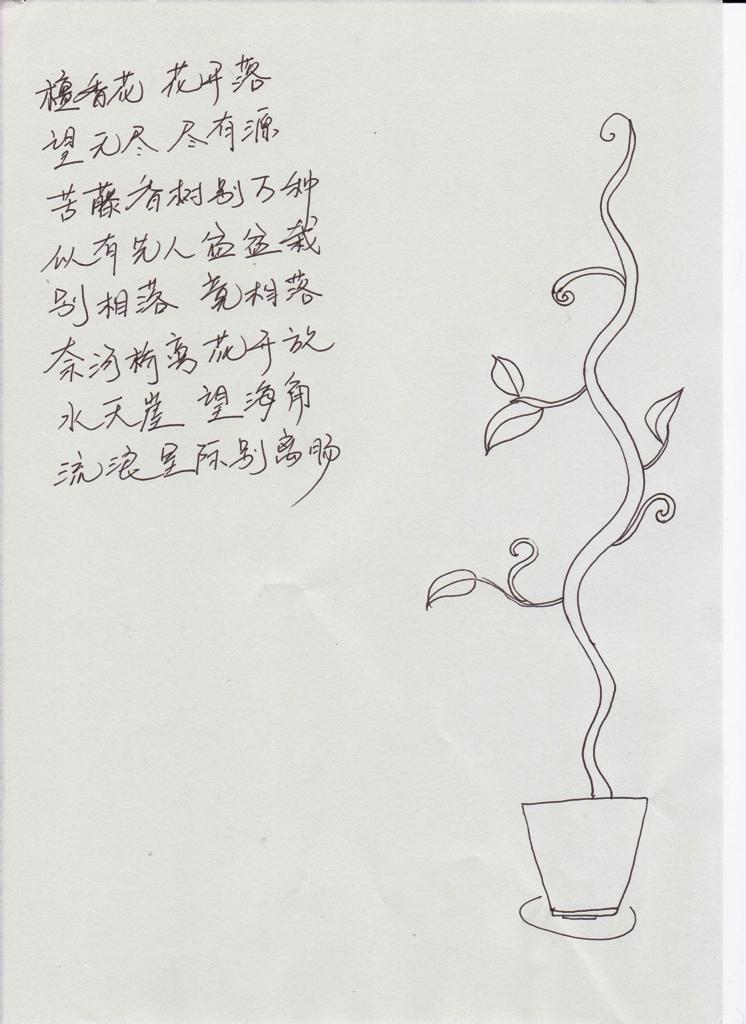 檀香花 花开落
望无尽 尽有源
苦藤香树别万种
似有先人盆盆栽
别相落 竟相落
奈河桥离花开放
水天崖 望海角
流浪星际别离肠